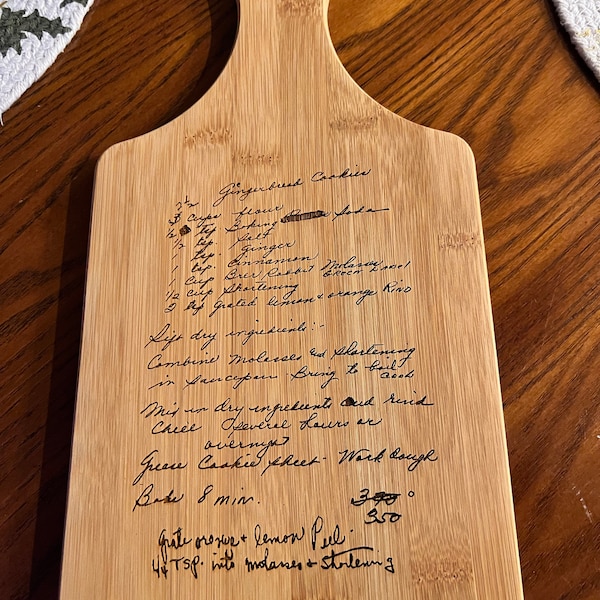 Gingerbread Cookies
3 cups flour
½ tsp Baking Soda
½ tsp. Salt
1 tsp. Ginger
1 tsp. Cinnamon
1 cup Brer Rabbit Molasses
GREEN LABEL
½ cup Shortening
2 tsp Grated lemon & orange RIND
Sift dry ingredients:-
Combine Molasses and Shortening
in Saucepan - Bring to boil
Cool
Mix in dry ingredients and rind
Chill Several hours or
overnight
Grease Cookie Sheet - Work dough
Bake 8 min.
350
Grate orange & lemon Peel.
tsp. into molasses & Shortening